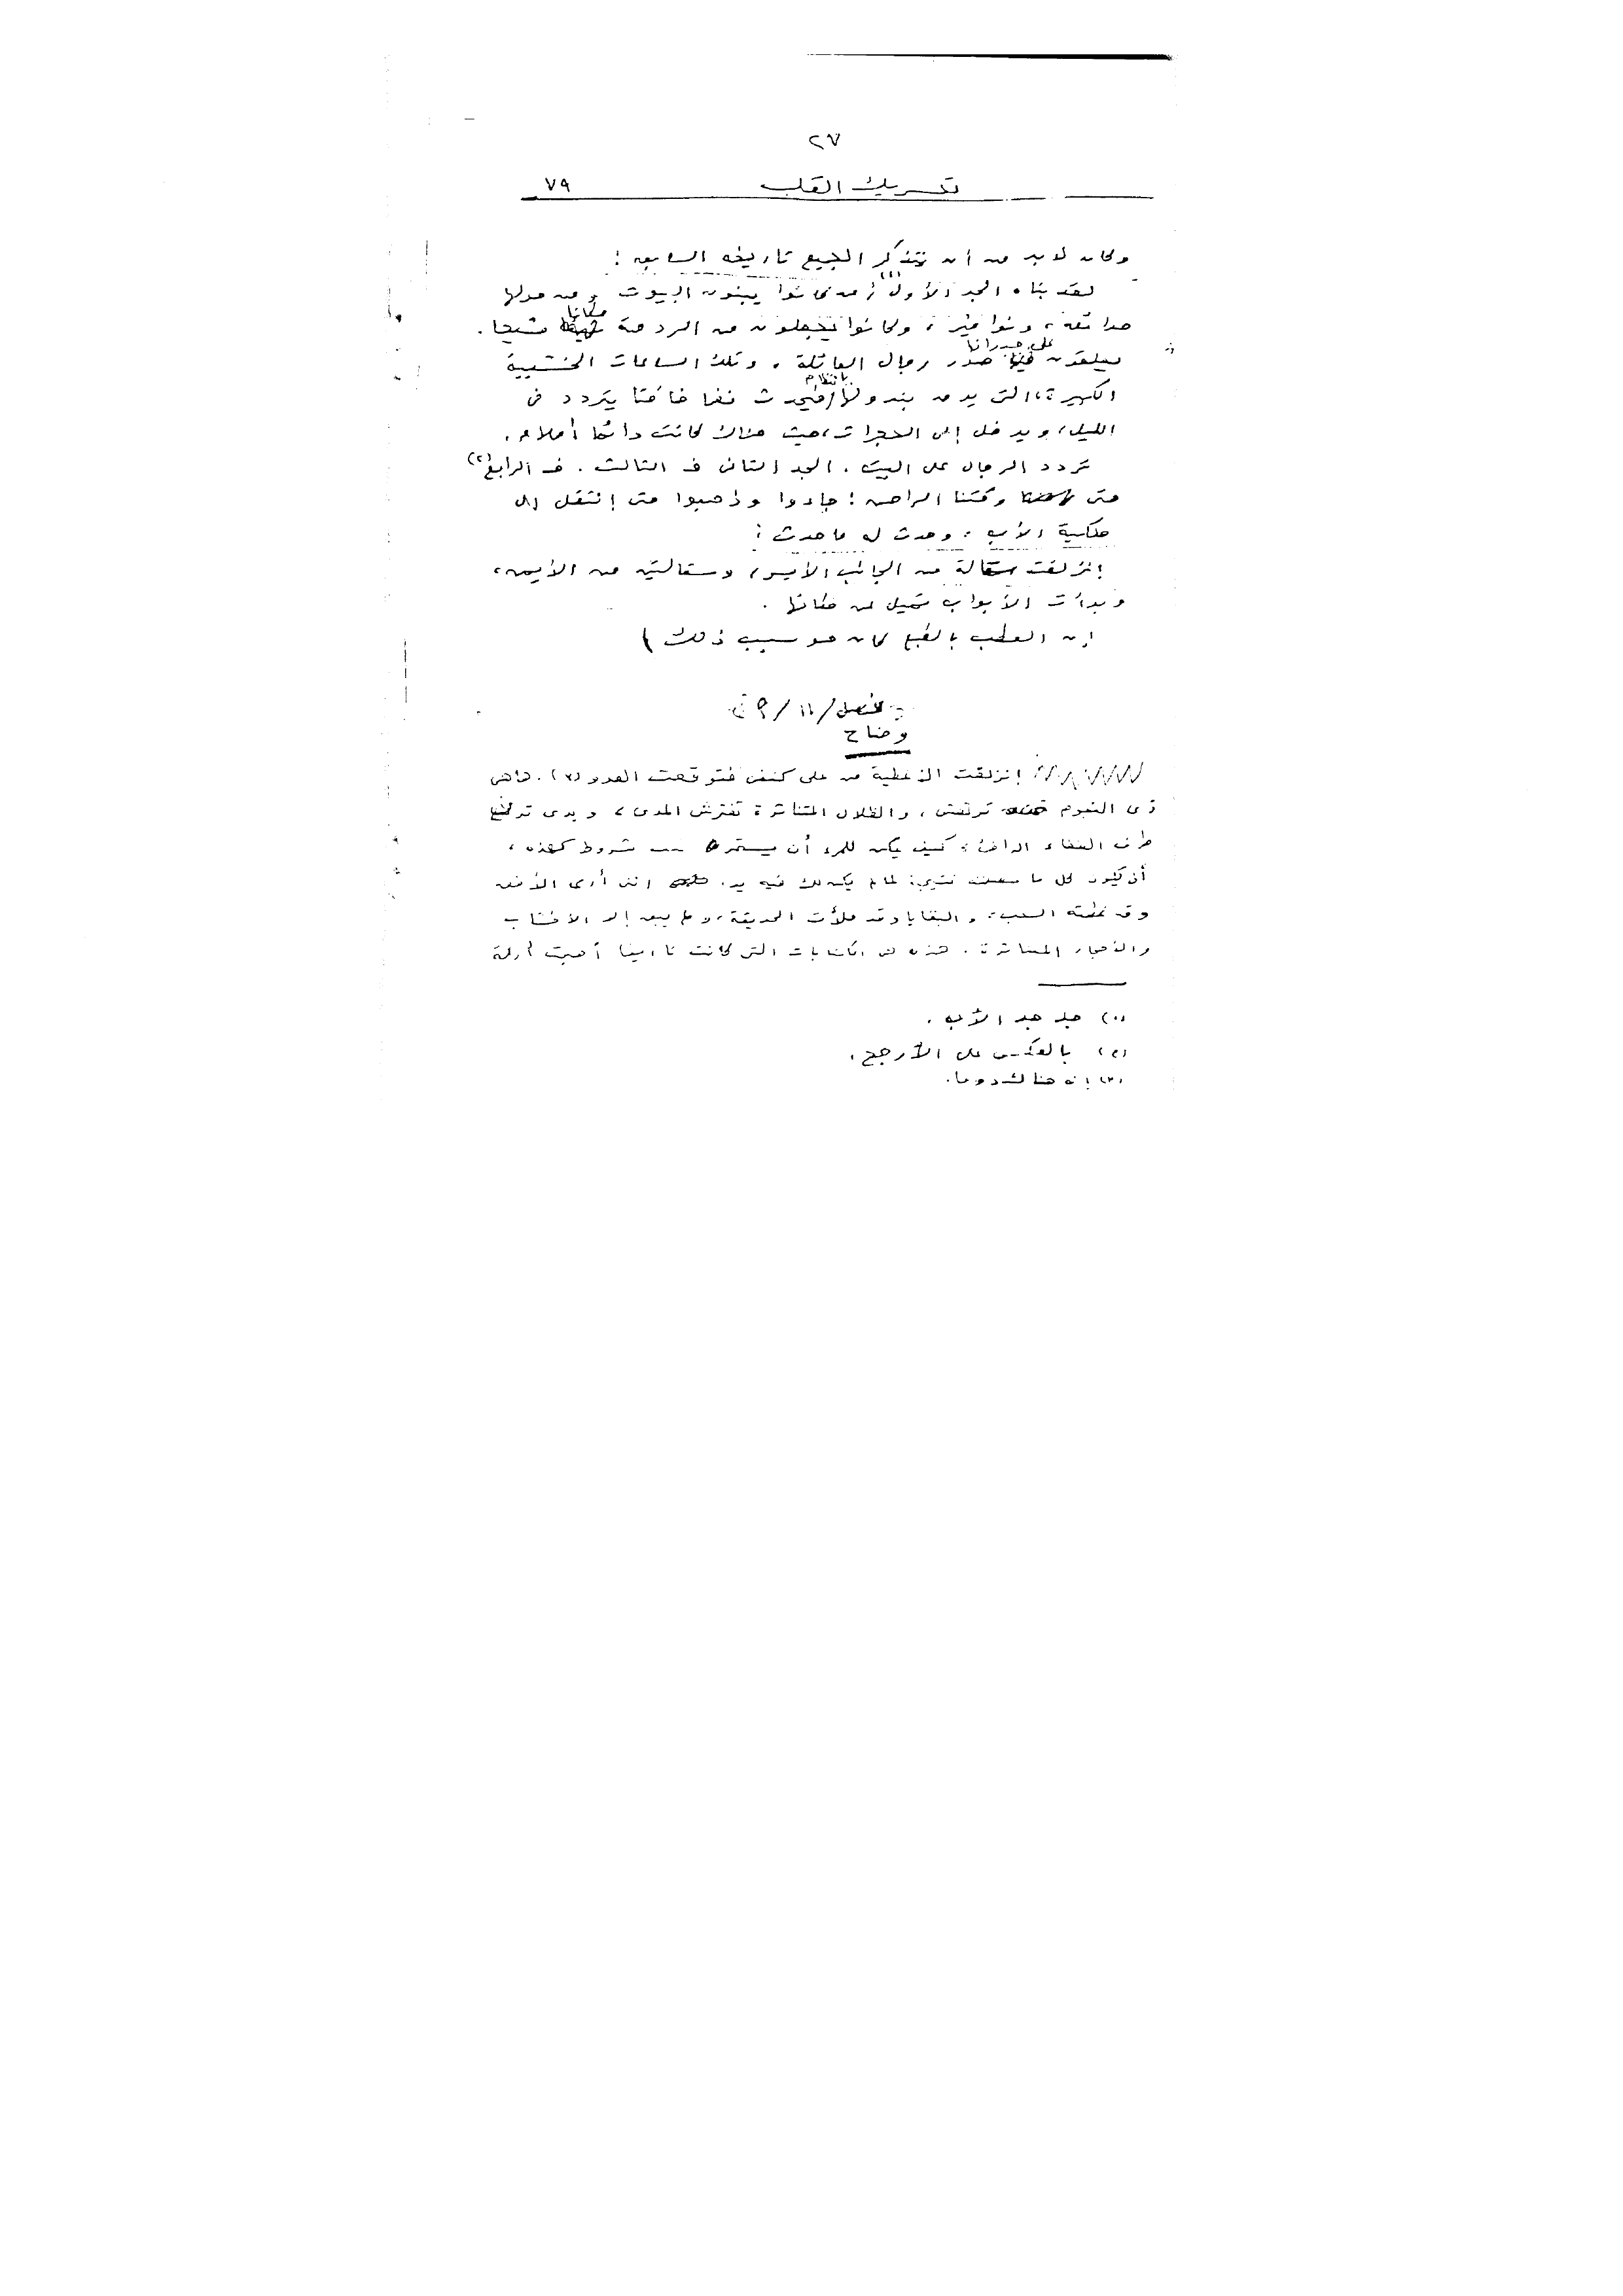 ٢٧
تحريك القلب ٧٩
وكان لابد من أن يتذكر الجميع تاريخه السابق :
لقد بناه الجد الأول (١) زمن كانوا يبنون البيوت ومن حولها
حدائقه ، ونوافير ، وكانوا يجعلون من الردهة مكانا متسعا .
يعلقون على جدرانها صور رجال العائلة ، وتلك الساعات الخشبية
الكبيرة ، التى يدق بندولها بانتظام فيحدث نغما خافتا يتردد فى
الليل ، ويدخل إلى الحجرات ، حيث هناك كانت دائما أحلام .
تردد الرجال على البيت . الجد الثانى فـ الثالث . فـ الرابع (٢)
حتى وقتنا الراهن : جاءوا وذهبوا حتى إنتقل إلى
ملكية الأب . وحدث له ما حدث :
إنزلقت سقالة من الجانب الأيسر ، وسقالتين من الأيمن ،
وبدأت الأبواب تميل عن مكانها .
إن العطب بالطبع كان هو سبب ذلك )
فصل / ١١ /
وضاح
إنزلقت الأغطية من على كتفى فتوقعت العدو (٣) . هاهى
ذى النجوم ترتعش ، والظلال المتناثرة تفترش المدى ، ويدى ترفع
طرف الغطاء الدافئ : كيف يمكن للمرء أن يستمر شروط كهذه ،
أن يكون كل ما نتيجة لما لم يكن لك فيه يد . إننى أرى الأفق
وقد غطته السحب ، والبقايا وقد ملأت الحديقة ، ولم يبق إلا الأخشاب
والأحجار المتناثرة . هذه هى الكتابات التى كانت تأتينا أضحت أدلة
(١) جد جد الأب .
(٢) بالعكس على الأرجح .
(٣) إنه هناك دوما .